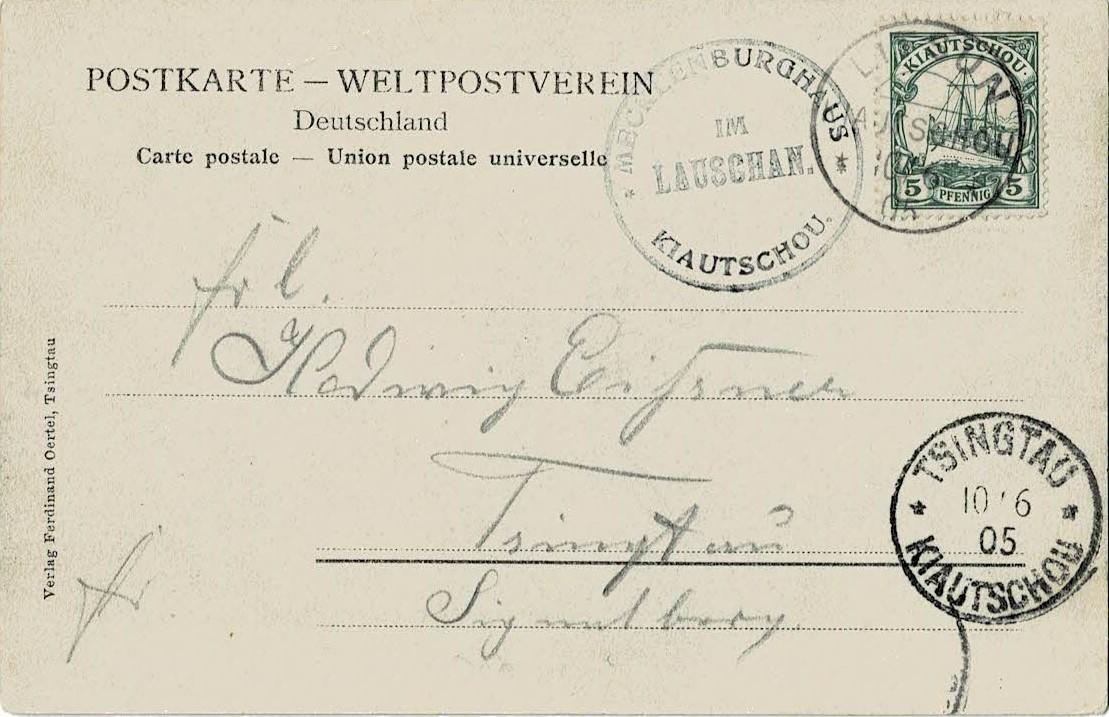 POSTKARTE — WELTPOSTVEREIN
Deutschland
Carte postale — Union postale universelle
MECKLENBURGHAUS
IM
LAUSCHAN.
KIAUTSCHOU.
KIAUTSCHOU
5 PFENNIG 5
Frl.
Hedwig
Tsingtau
Signalberg.
fr.
Verlag Ferdinand Oertel, Tsingtau
TSINGTAU
10 6
05
KIAUTSCHOU